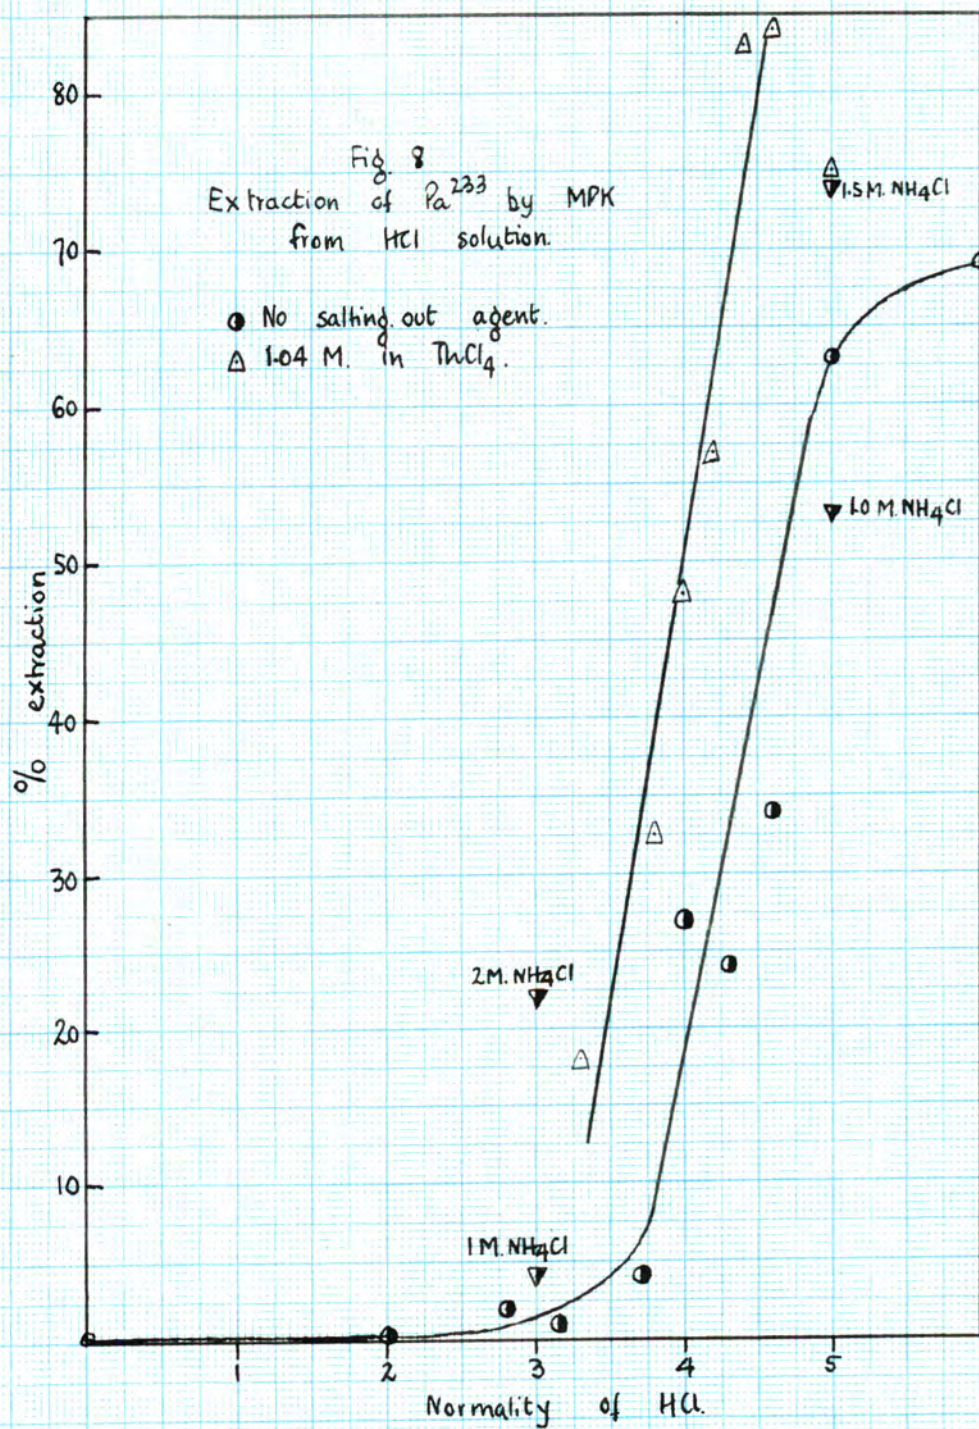 Fig. 8
Extraction of Pa233 by MPK
from HCl solution.
No salting out agent.
1.04 M. in ThCl4.
80
70
60
50
40
30
20
10
% extraction
1.5 M. NH4Cl
1.0 M. NH4Cl
2 M. NH4Cl
1 M. NH4Cl
1 2 3 4 5
Normality of HCl.